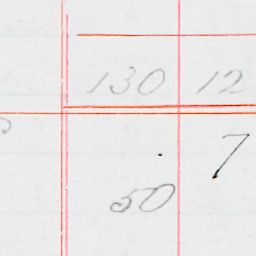 130 12
7
50